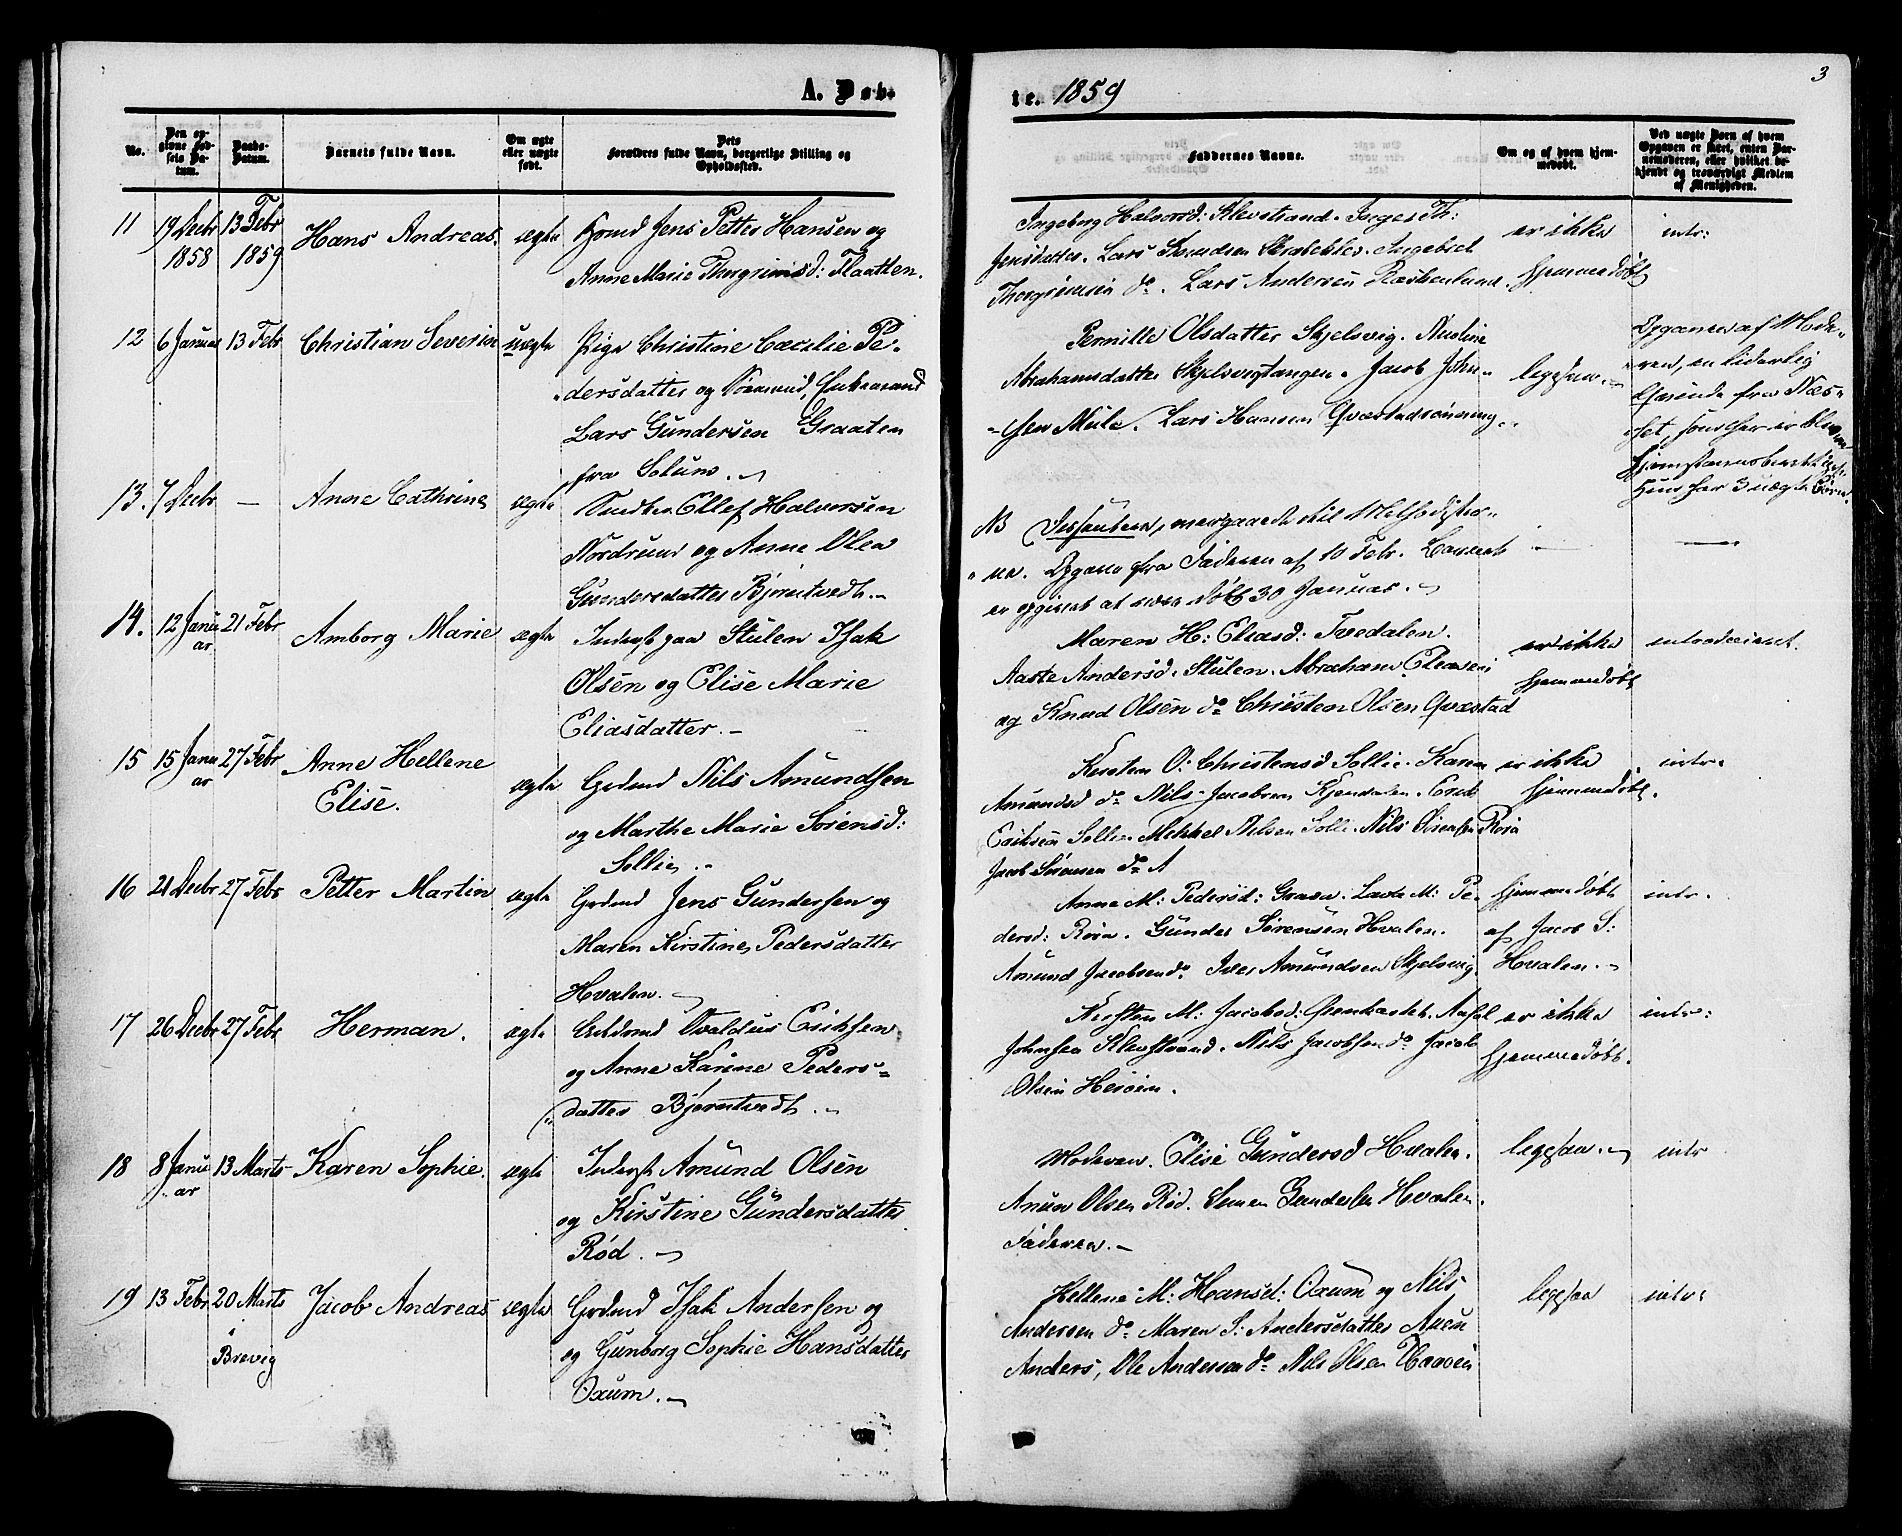 3
A. Døb-
te. 1859
No.
Den op-
givne Fød-
sels Da-
tum.
Daabs-
Datum.
Barnets fulde Navn.
Om ægte
eller uægte
født.
Dets
Forældres fulde Navn, borgerlige Stilling og
Opholdssted.
Faddernes Navne.
Om og af hvem hjem-
medøbt.
Ved uægte Børn af hvem
Opgaven er skeet, enten Bar-
nemoderen, eller hvilket be-
kjendt og troværdigt Medlem
af Menigheden.
11 19 Decbr 13 Febr Hans Andreas. ægte Jens Petter Hansen og
1858 1859 Anne Marie Thorgrimsd: Flaatten.
Ingeborg Halvorsd: Klevstrand. Inger Th:
Jensdatter. Lars Knudsen Ingebret
Thorgrimsen do. Lars Andersen
er ikke
hjemmedøbt
intr:
12 6 Januar 13 Febr Christian Severin uægte Pige Christine Cæcilie Pe-
dersdatter og Enkemand
Lars Gundersen Graaten
fra Solum.
Pernille Olsdatter Skjelsvig.
Abrahamsdatter Skjelsvigtangen. Jacob John-
sen Mule. Lars Hansen
ligesaa.
Opgaven af Mode-
ren, en liderlig
Qvinde fra Næs-
set, som her er bleven
Hun har 3 uægte Børn.
13. 7 Decbr — Anne Cathrine ægte Ellef Halvorsen
Nordrum og Anne Olea
Gundersdatter Bjørntvedt.
NB Dissenter, overgaaede til Methodister-
ne. Opgave fra Faderen af 10 Febr. Barnet
er opgivet at være døbt 30 Januar.
14. 12 Janu 21 Febr Amborg Marie ægte Inderst paa Stulen Isak
ar Olsen og Elise Marie
Eliasdatter.
Maren H: Eliasd: Tvedalen.
Aaste Andersd. Stulen. Abraham Eliasen
og Knud Olsen do Christen Olsen Qvæstad
er ikke
hjemmedøbt
introduceret.
15 15 Janu 27 Febr Anne Hellene ægte Grdmd Nils Amundsen
ar Elise. og Marthe Marie Sørensd:
Sollie.
Kirsten O: Christensd Sollie. Karen
Amundsd do Nils Jacobsen Kjendalen. Erik
Eriksen Sollie. Mikkel Nilsen Sollie. Nils Sørensen Røra
Jacob Sørensen do
er ikke
hjemmedøbt.
intr.
16 21 Decbr 27 Febr Petter Martin ægte Grdmd Jens Gundersen og
Maren Kirstine Pedersdatter
Hvalen.
Anne M: Pedersd: Grava. M: Pe-
dersd: Røra. Gunder Sørensen Hvalen.
Amund Jacobsen do. Iver Amundsen Skjelsvig
Hjemmedøbt
af Jacob S:
Hvalen.
intr.
17 26 Decbr 27 Febr Herman. ægte Ovaldus Eriksen
og Anne Karine Peders-
datter Bjørntvedt.
Kirsten M: Jacobsd:
Johnsen Klevstrand. Nils Jacobsen do Jacob
Olsen Herøen.
er ikke
hjemmedøbt.
intr:
18 8 Janu 13 Marts Karen Sophie. ægte Inderst Amund Olsen
ar og Kirstine Gundersdatter
Rød.
Moderen. Elise Gundersd Hvalen.
Olsen Rød. Simen Gundersen Hvalen.
Faderen.
ligesaa.
intr
19 13 Febr 20 Marts Jacob Andreas ægte Grdmd Isak Andersen og
i Brevig og Gunborg Sophie Hansdatter
Oxum.
Hellene M: Hansd: Oxum og Nils
Andersen do Maren S: Andersdatter Auen
Anders, Ole Andersen do Nils Olsen
ligesaa
intr: